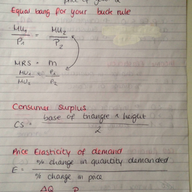 price of good 2
Equal bang for your buck rule
MU₁ = MU₂
P₁ P₂
MRS = m
MU₁ = P₁
MU₂ P₂
Consumer Surplus
CS = base of triangle × height
2
Price Elasticity of demand
E = % change in quantity demanded
% change in price
ΔQ P